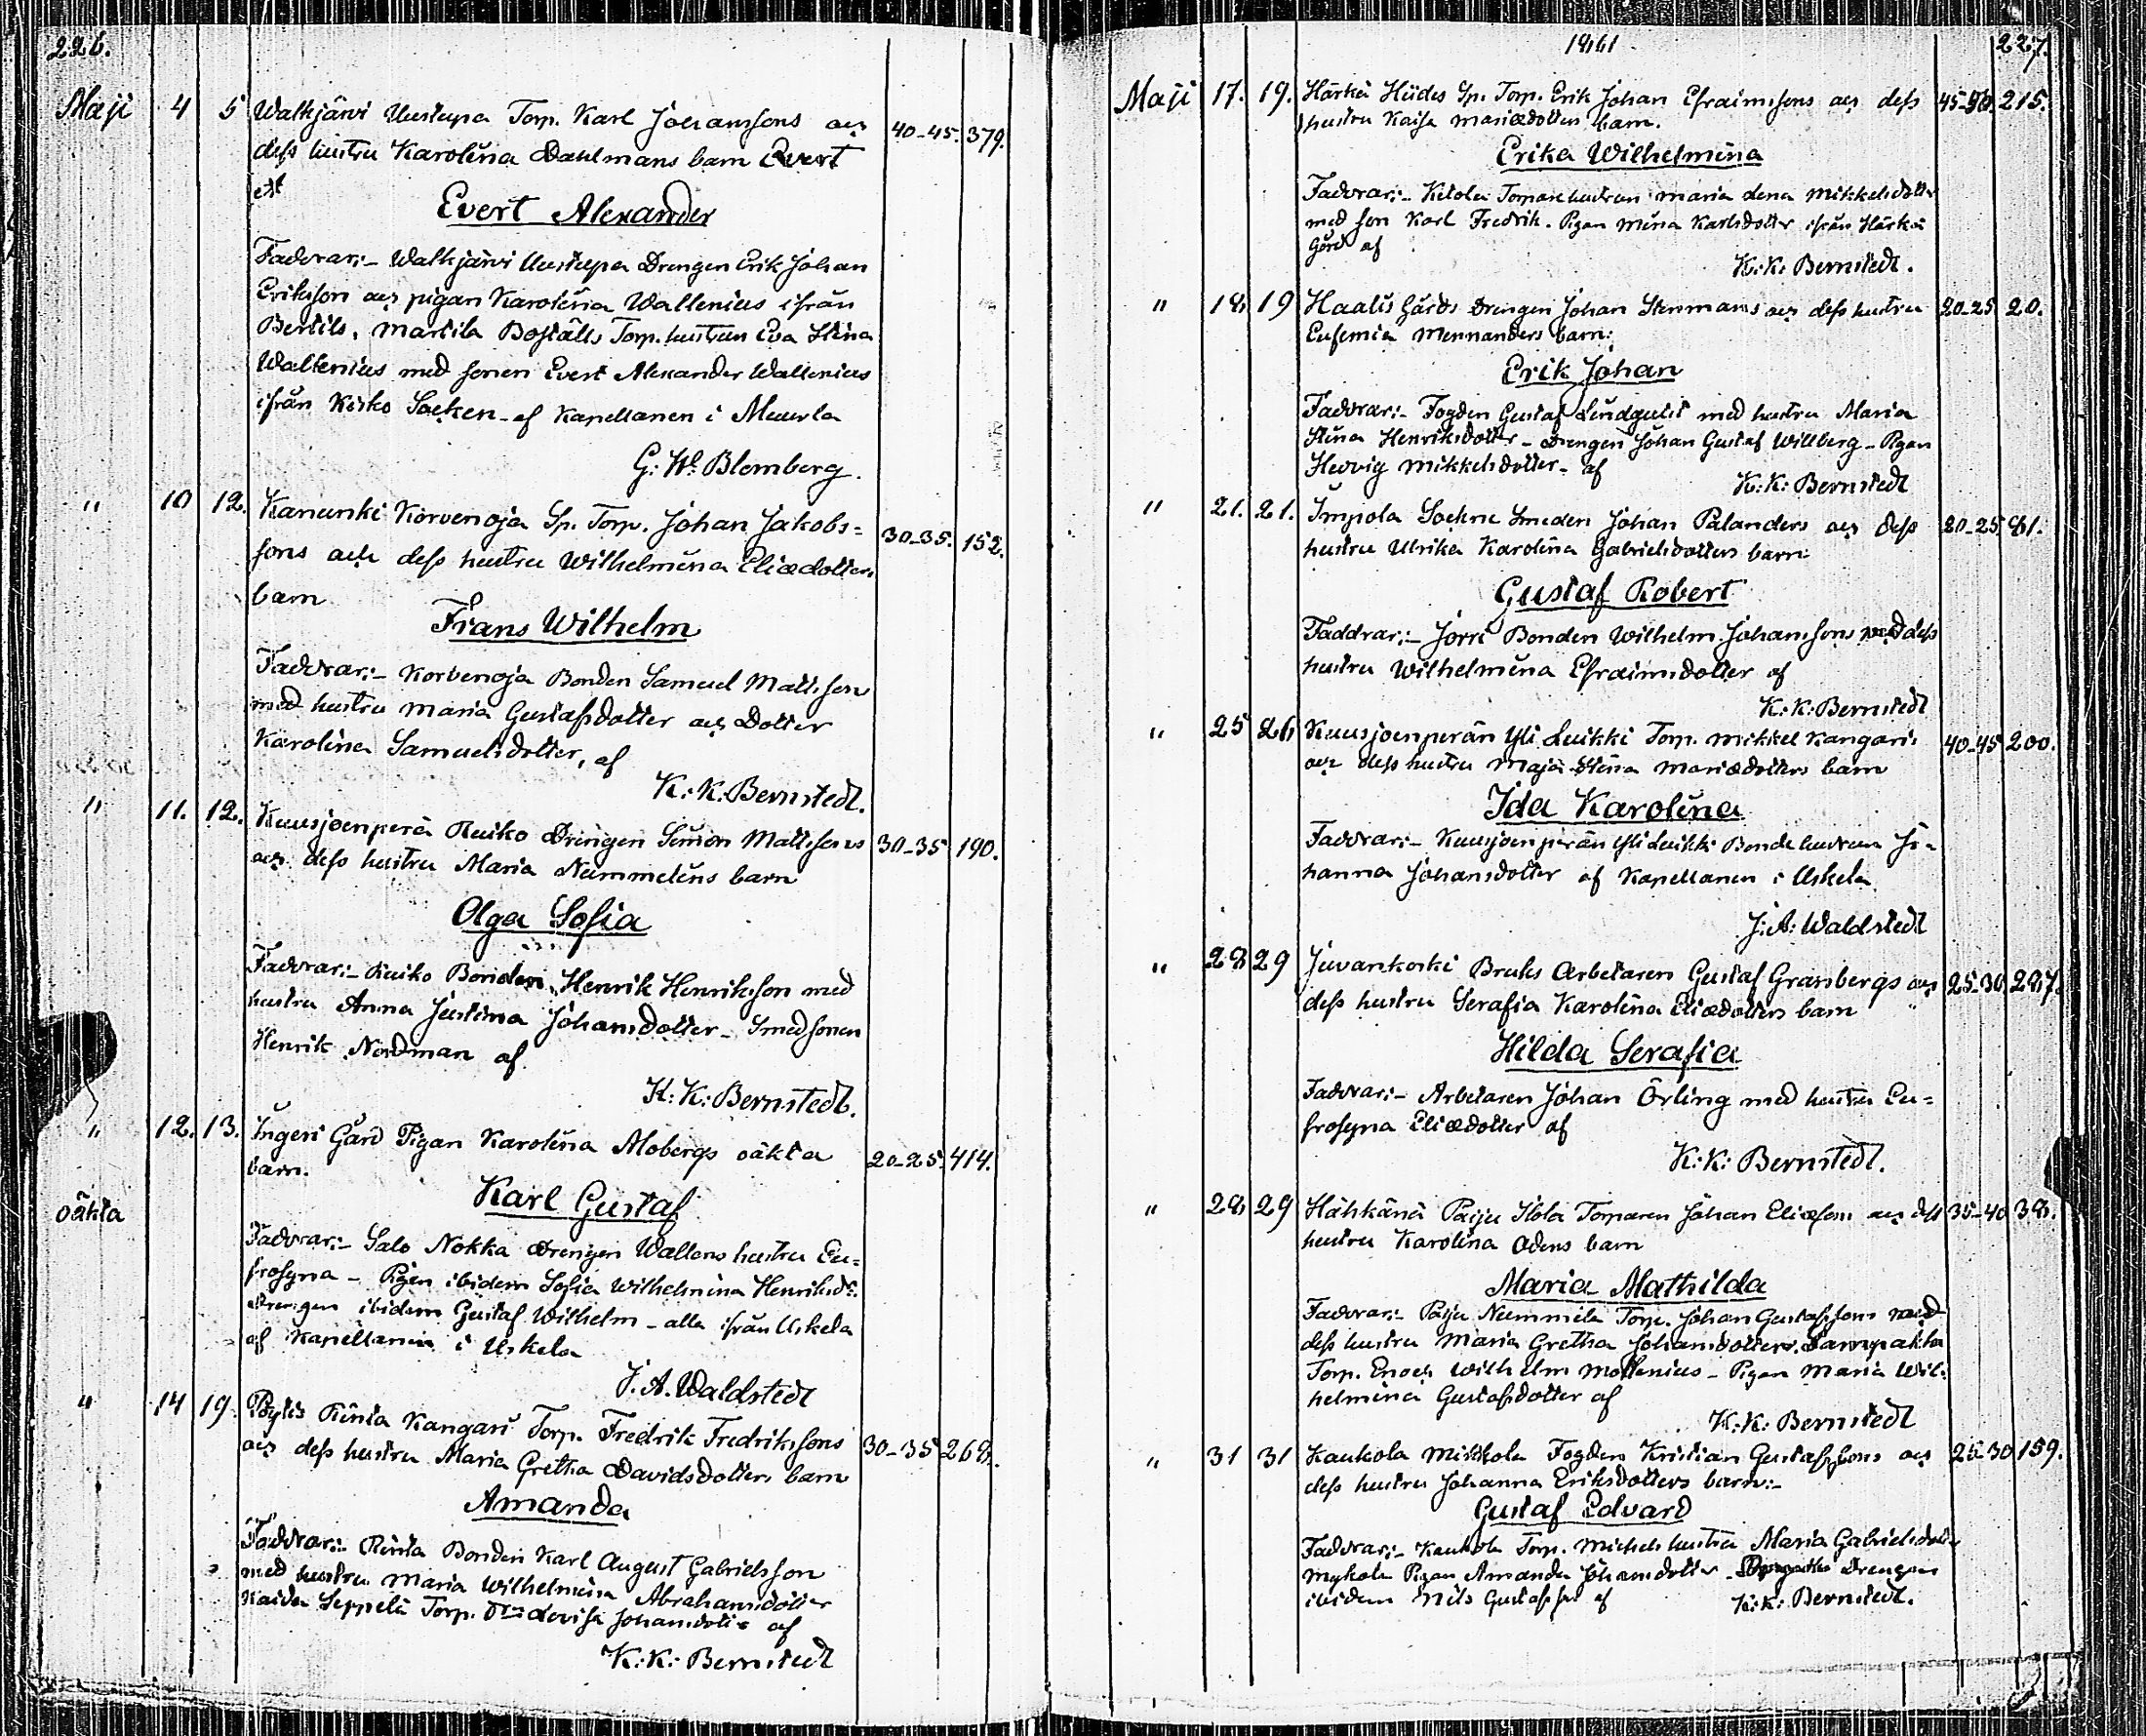 226.
Maji 4 5 Walkjärvi Uustupa Torp. Karl Johanssons och 40-45. 379.
dess hustru Karolina Dahlmans barn Evert
Evert Alexander
Faddrar:- Walkjärvi Uustupa Drengen Erik Johan
Eriksson och pigan Karolina Wallenius ifrån
Bertils, Martila Boställs Torp. hustrun Eva Stina
Wallenius med sonen Evert Alexander Wallenius
ifrån Kisko Socken - af Kapellanen i Muurla
G: W: Blomberg.
" 10 12. Kanunki Korvenoja Sp. Torp. Johan Jakobs= 30-35. 152.
sons och dess hustru Wilhelmina Eliædotters
barn
Frans Wilhelm
Faddrar:- Korvenoja Bonden Samuel Matsson
med hustru Maria Gustafsdotter och Dotter
Karolina Samuelsdotter, af
K: K: Bernstedt.
" 11. 12. Kuusjoenperä Ruiko Drengen Simon Matssons 30-35 190.
och dess hustru Maria Nummelins barn
Olga Sofia
Faddrar:- Ruiko Bonden Henrik Henriksson med
hustru Anna Justina Johansdotter - Smedsonen
Henrik Nordman af
K: K: Bernstedt.
" 12. 13. Ingeri Gård Pigan Karolina Mobergs oäkta 20-25. 414.
barn.
oäkta
Karl Gustaf
Faddrar:- Salo Nokka Drengen Wallens hustru Eu=
frosyna - Pigan ibidem Sofia Wilhelmina Henriksdr.
Drengen ibidem Gustaf Wilhelm - alla ifrån Uskela
af Kapellanen i Uskela
J. A. Waldstedt
" 14 19. Pöytiö Rinta Kangari Torp. Fredrik Fredrikssons 30-35 268.
och dess hustru Maria Gretha Davidsdotters barn
Amanda
Faddrar:- Rinta Bonden Karl August Gabrielsson
med hustru Maria Wilhelmina Abrahamsdotter
Seppelä Torp. Lovisa Johansdotter af
K: K: Bernstedt
1861 227.
Maji 17. 19. Härkä Hiides Sp. Torp. Erik Johan Efraimssons och dess 45-50. 215.
hustru Kaisa Mariædotters barn.
Erika Wilhelmina
Faddrar:- Ketola Torparehustrun Maria Lena Mikkelsdotter
med son Karl Fredrik. Pigan Mina Karlsdotter ifrån Härkä
Gård af
K: K: Bernstedt.
" 18 19 Haalis Gårds Drengen Johan Stenmans och dess hustru 20-25 20.
Eufemia Mennanders barn:
Erik Johan
Faddrar:- Fogden Gustaf Lindqvist med hustru Maria
Stina Henriksdotter - Drengen Johan Gustaf Willberg - Pigan
Hedvig Mikkelsdotter - af
K: K: Bernstedt
" 21. 21. Impola Sockne Smeden Johan Palanders och dess 20-25 81.
hustru Ulrika Karolina Gabrielsdotters barn
Gustaf Robert
Faddrar:- Jorri Bonden Wilhelm Johanssons med dess
hustru Wilhelmina Efraimsdotter af
K: K: Bernstedt
" 25 26 Kuusjoenperän Yli Luikki Torp. Mikkel Kangaris 40-45 200.
och dess hustru Maja Stina Mariædotters barn
Ida Karolina
Faddrar:- Kuusjoenperän Yli Luikki Bonde hustrun Jo=
hanna Johansdotter af Kapellanen i Uskela
J: A: Waldstedt
" 28 29 Juvankoski Bruks Arbetaren Gustaf Granbergs och 25-30 287.
dess hustru Serafia Karolina Eliædotters barn
Hilda Serafia
Faddrar:- Arbetaren Johan Örling med hustru Eu=
frosyna Eliædotter af
K: K: Bernstedt.
" 28 29 Hähkänä Paiju Ilola Torparen Johan Eliæsons och dess 35-40 38.
hustru Karolina Odens barn
Maria Mathilda
Faddrar:- Paiju Nummila Torp. Johan Gustafssons med
dess hustru Maria Gretha Johansdotter. Lampakka
Torp. Enoch Wilhelm Mollenius - Pigan Maria Wil:
helmina Gustafsdotter af
K: K: Bernstedt
" 31 31 Kaukola Mikkola Fogden Kristian Gustafssons och 25-30 159.
dess hustru Johanna Eriksdotters barn:-
Gustaf Edvard
Faddrar:- Kaukola Torp. Michels hustru Maria Gabrielsdotter
Mykola Pigan Amanda Johansdotter - Drengen
ibidem Nils Gustafsson af K: K: Bernstedt.